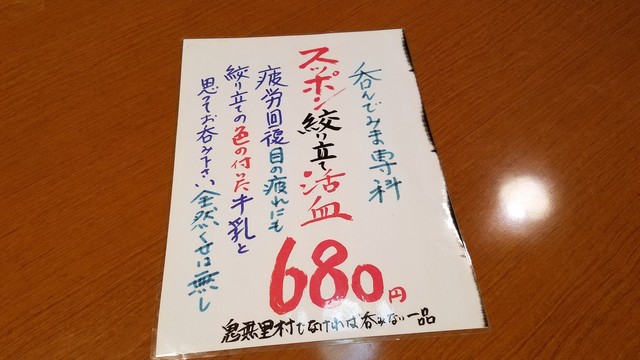 呑んでみま専科
スッポン絞り立て活血
疲労回復目の疲れにも
絞り立ての色の付いた牛乳と
思ってお呑み下さい全然くせは無し
680円
鬼無里村でなければ呑めない一品